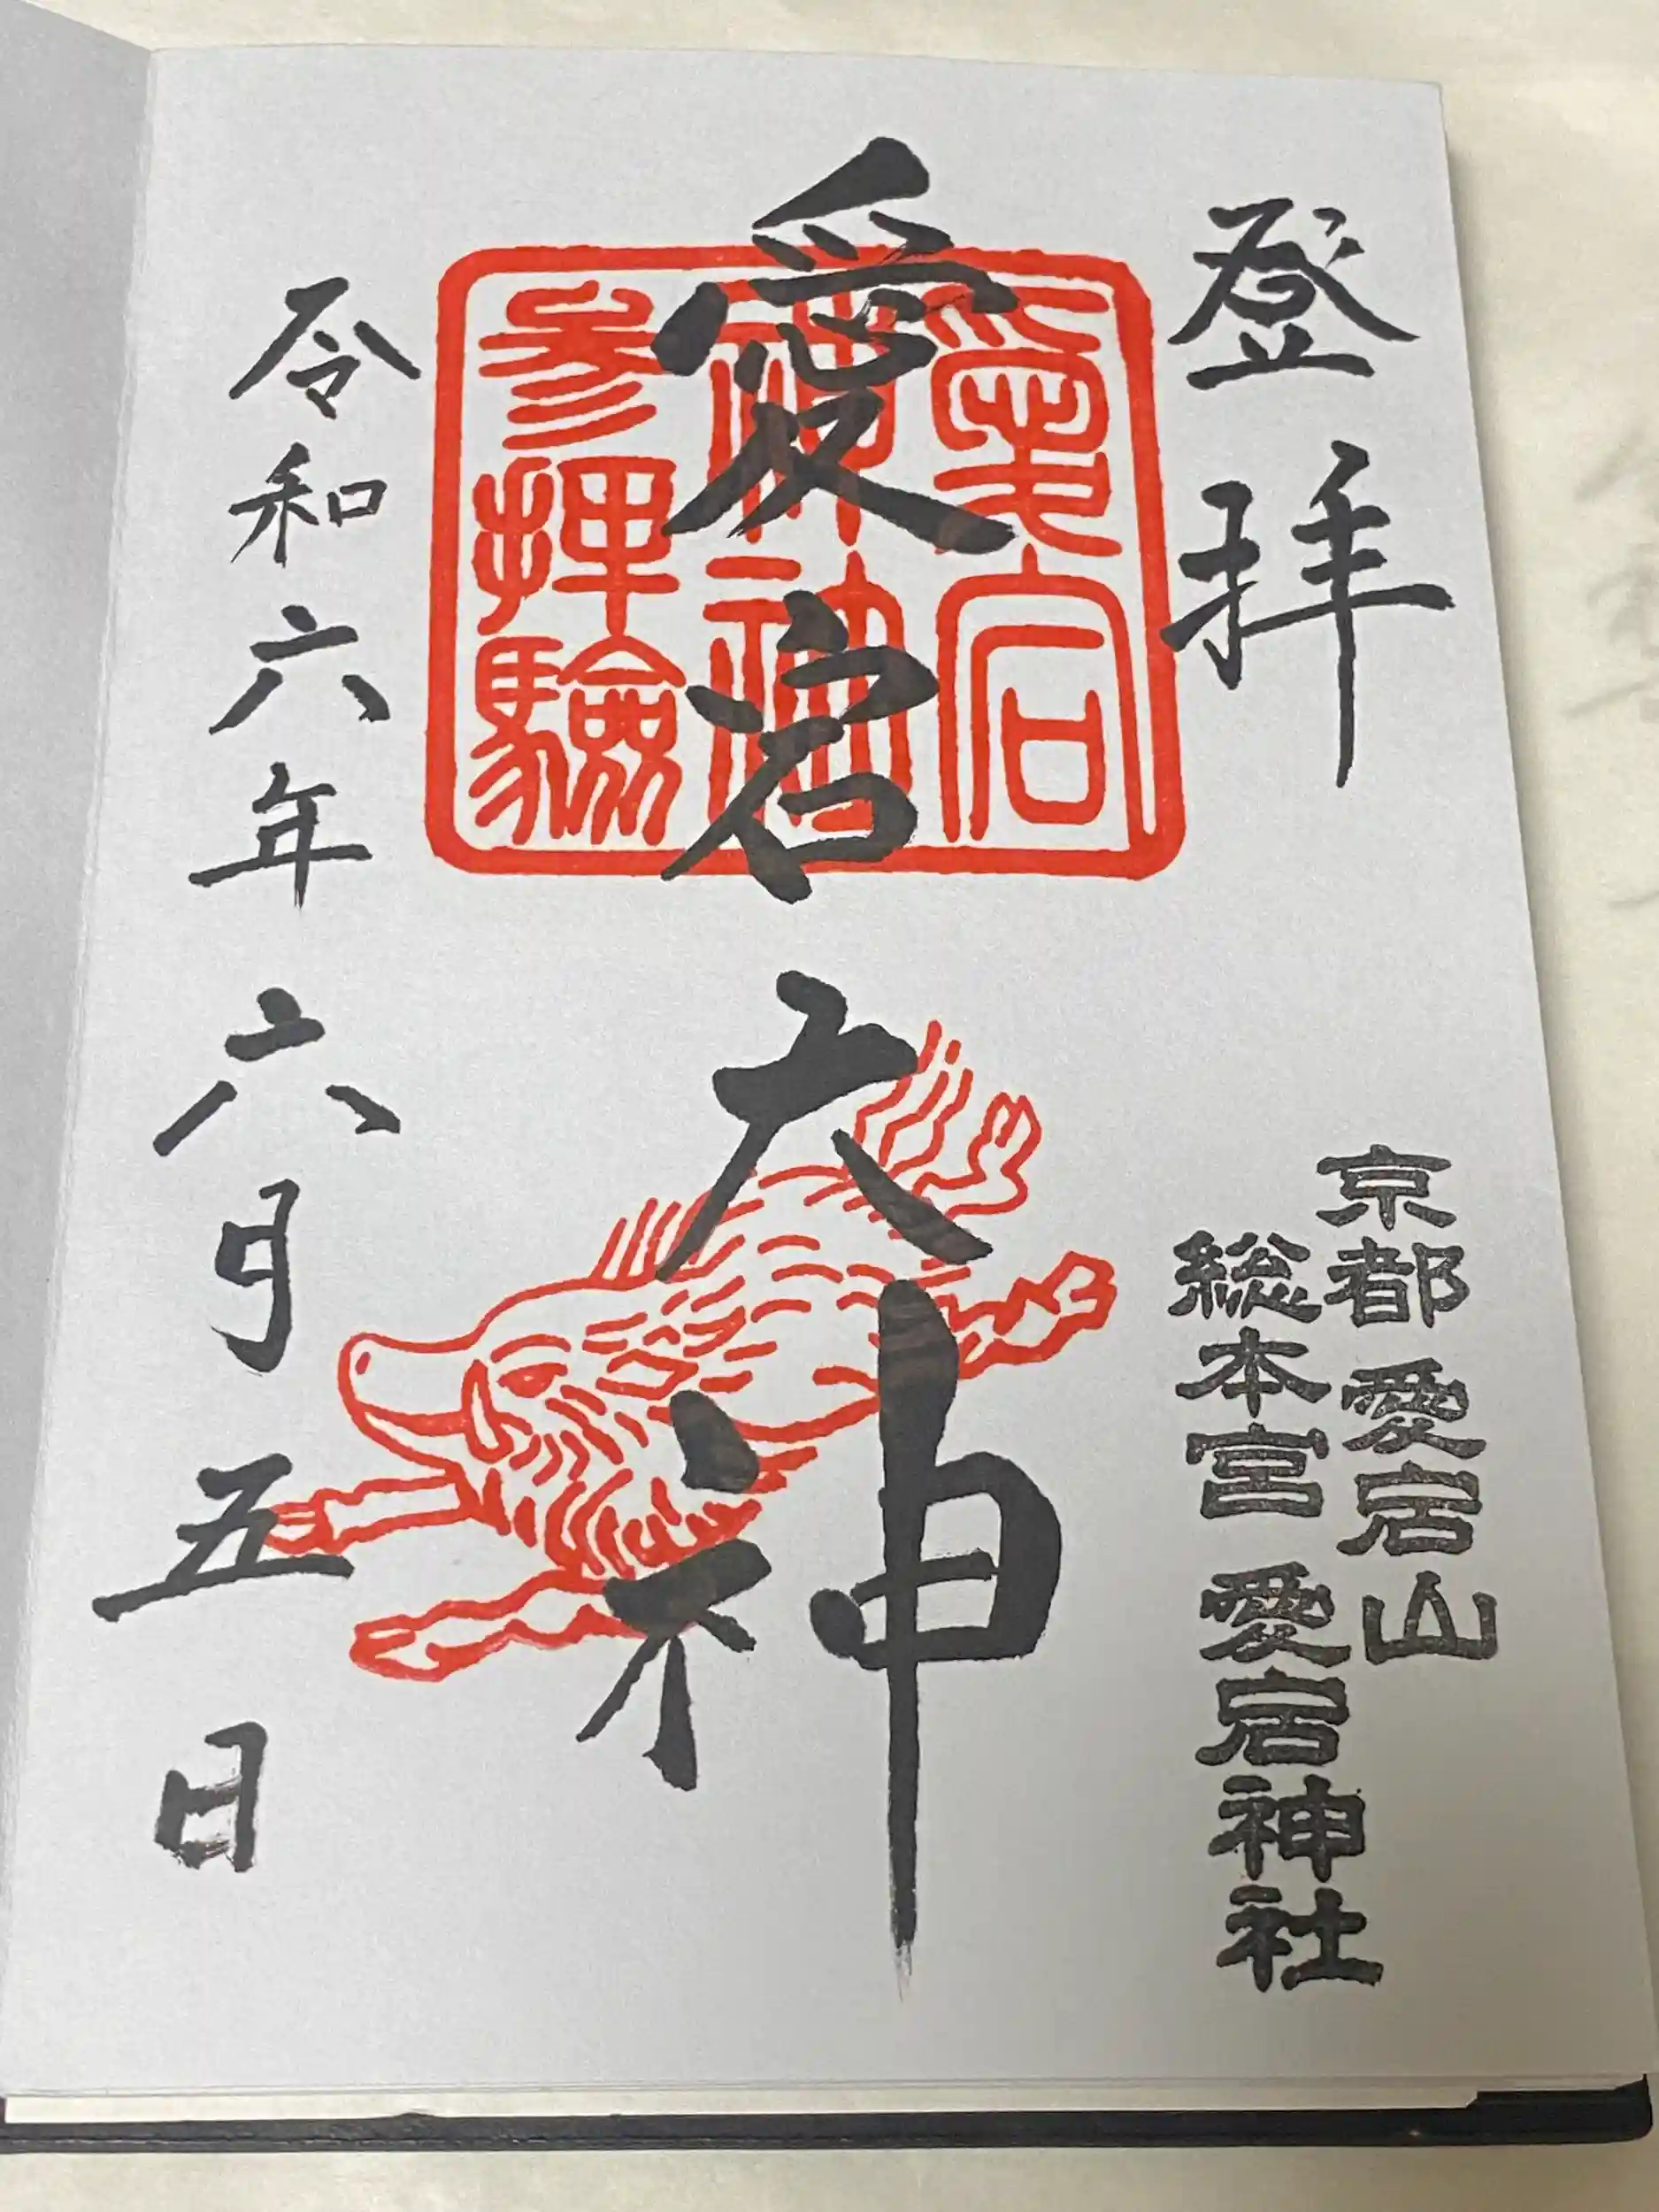 登拝
京都 愛宕山
総本宮 愛宕神社
愛宕大神
愛宕
神社
参拝験
令和六年六月五日